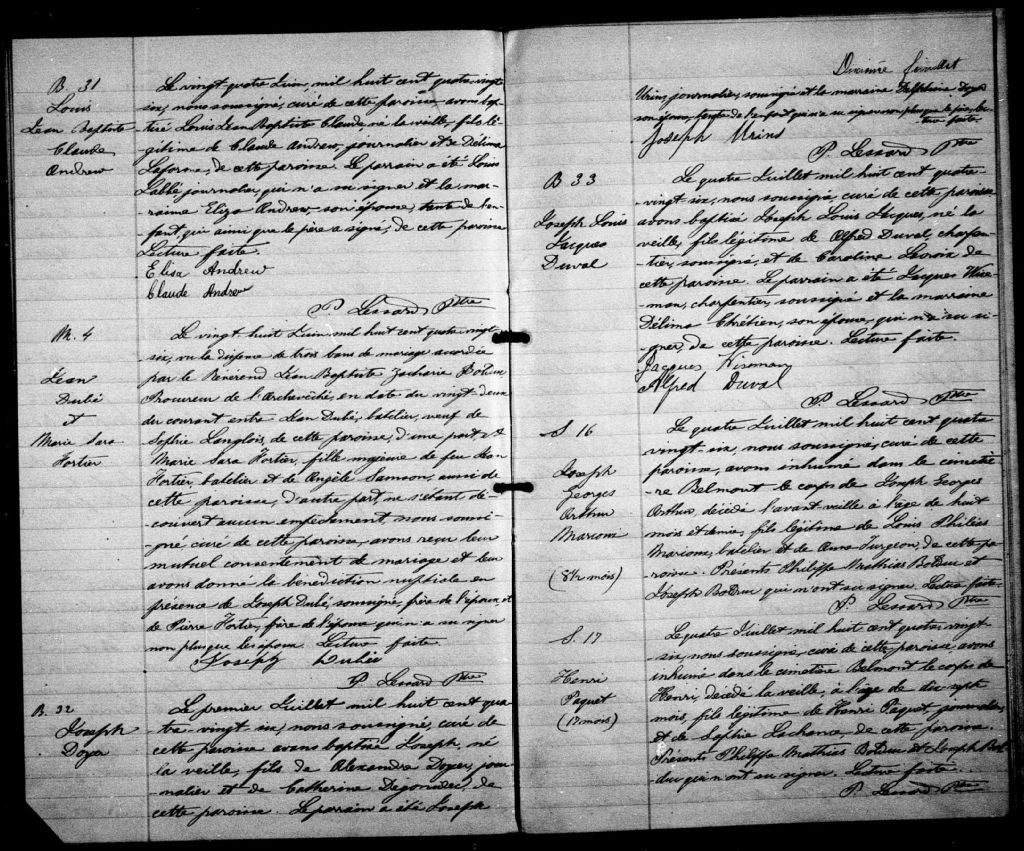 B. 31
Louis
Jean Baptiste
Claude
Andrew
Le vingt quatre Juin, mil huit cent quatre vingt
six, nous soussigné, curé de cette paroisse, avons bap-
tisé Louis Jean Baptiste Claude, né la veille, fils lé-
gitime de Claude Andrew, journalier et de Délima
Laforme, de cette paroisse. Le parrain a été Louis
Labbé journalier, qui n'a su signer et la mar-
raine Eliza Andrew, son épouse, tante de l'en-
fant, qui ainsi que le père a signé, de cette paroisse
Lecture faite.
Elisa Andrew
Claude Andrew
P. Lessard Ptre
M. 4
Jean
Dubé
et
Marie Sara
Fortier
Le vingt-huit Juin mil huit cent quatre vingt-
six, vu la dispense de trois bans de mariage accordée
par le Révérend Jean Baptiste Zacharie
Procureur de l'Archevêché, en date du vingt-deux
du courant entre Jean Dubé, batelier, veuf de
Sophie Langlois, de cette paroisse, d'une part, et
Marie Sara Fortier, fille majeure de feu Jean
Fortier, batelier et de Angèle Samson, aussi de
cette paroisse, d'autre part, ne s'étant dé-
couvert aucun empêchement, nous soussi-
gné curé de cette paroisse, avons reçu leur
mutuel consentement de mariage et leur
avons donné la bénédiction nuptiale en
présence de Joseph Dubé, soussigné, frère de l'époux, et
de Pierre Fortier, frère de l'épouse qui n'a su signer
non plus que les époux. Lecture faite.
Joseph Dubé
P. Lessard Ptre
B. 32
Joseph
Doyer
Le premier Juillet mil huit cent qua-
tre-vingt six, nous soussigné, curé de
cette paroisse avons baptisé Joseph, né
la veille, fils de Alexandre Doyer, jour-
nalier et de Catherine de
cette paroisse. Le parrain a été Joseph
feuillet
Urins, journalier, soussigné et la marraine Doyer
son épouse, tante de l'enfant qui n'a su signer non plus que le père. Lec-
ture faite.
Joseph Urins
P. Lessard Ptre
B 33
Joseph Louis
Jacques
Duval
Le quatre Juillet mil huit cent quatre-
vingt-six, nous soussigné, curé de cette paroisse
avons baptisé Joseph Louis Jacques, né la
veille, fils légitime de Alfred Duval, charpen-
tier, soussigné, et de Caroline Leroix de
cette paroisse. Le parrain a été Jacques Wise-
man, charpentier, soussigné et la marraine
Délima Chrétien, son épouse, qui n'a su si-
gner, de cette paroisse. Lecture faite.
Jacques Wiseman
Alfred Duval
P. Lessard Ptre
S. 16
Joseph
Georges
Arthur
Marcoux
(8½ mois)
Le quatre Juillet mil huit cent quatre
vingt-six, nous soussigné, curé de cette
paroisse, avons inhumé dans le cimetiè-
re Belmont le corps de Joseph Georges
Arthur, décédé l'avant veille à l'âge de huit
mois et demie, fils légitime de Louis Philéas
Marcoux, batelier et de Anna Turgeon, de cette pa-
roisse. Présents Philippe Mathias Bolduc et
Joseph Bolduc qui n'ont su signer. Lecture faite.
P. Lessard Ptre
S. 17
Henri
Paquet
Le quatre Juillet mil huit cent quatre-vingt-
six, nous soussigné, curé de cette paroisse avons
inhumé dans le cimetière Belmont le corps de
Henri, décédé la veille, à l'âge de dix-sept
mois, fils légitime de Henri Paquet, journalier,
et de Sophie Lachance, de cette paroisse.
Présents Philippe Mathias Bolduc et Joseph Bol-
duc qui n'ont su signer. Lecture faite.
P. Lessard Ptre